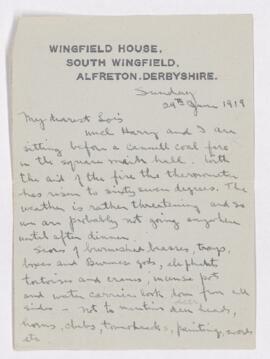 WINGFIELD HOUSE,
SOUTH WINGFIELD,
ALFRETON. DERBYSHIRE.
Sunday
29th June 1919
My dearest Lois
Uncle Harry and I are
sitting before a cannell coal fire
in the square hall. With
the aid of the fire the thermometer
has risen to sixty seven degrees. The
weather is rather threatening and so
we are probably not going anywhere
until after dinner.
Scores of burnished brasses, trays,
boxes and Burmese gods, elephants
tortoises and cranes, incense pots
and water carriers look down from all
sides - not to mention deer heads,
horns, clubs, tomahawks, paintings, swords
etc